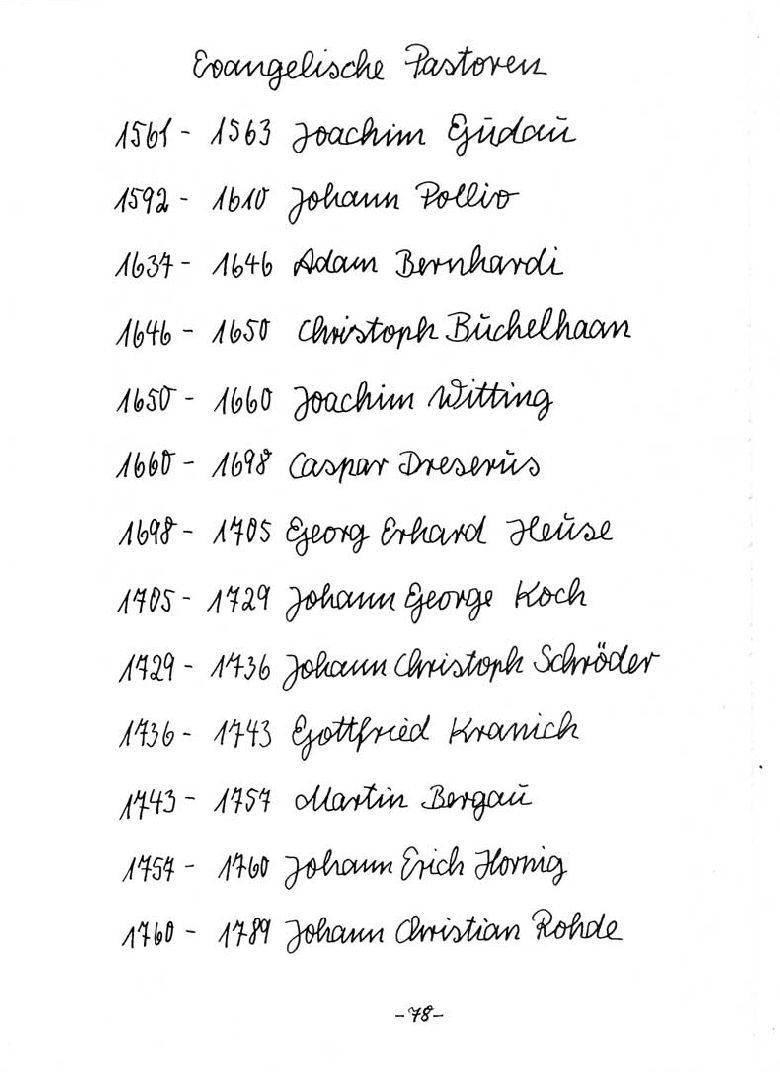 Evangelische Pastoren
1561 - 1563 Joachim Gudau
1592 - 1610 Johann Pollio
1637 - 1646 Adam Bernhardi
1646 - 1650 Christoph Buchelhaan
1650 - 1660 Joachim Witting
1660 - 1698 Caspar Dreserus
1698 - 1705 Georg Erhard Heuse
1705 - 1729 Johann George Koch
1729 - 1736 Johann Christoph Schröder
1736 - 1743 Gottfried Kranich
1743 - 1757 Martin Bergau
1757 - 1760 Johann Erich Hornig
1760 - 1789 Johann Christian Rohde
-78-